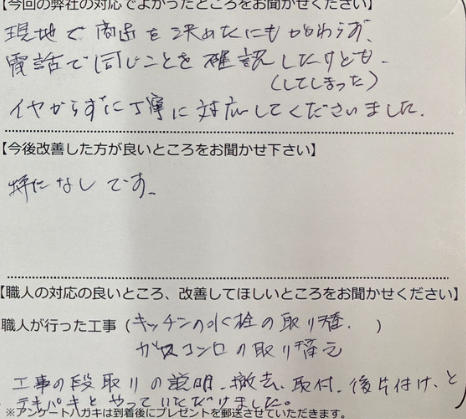 【今回の弊社の対応でよかったところをお聞かせください】
現地で商品を決めたにもかかわらず、
電話で同じことを確認したけども、
(してしまった)
イヤがらずに丁寧に対応してくださいました。
【今後改善した方が良いところをお聞かせ下さい】
特になしです。
【職人の対応の良いところ、改善してほしいところをお聞かせください】
職人が行った工事(キッチンの水栓の取り替、)
ガスコンロの取り替え
工事の段取りの説明、撤去、取付、後片付け、と
テキパキとやっていただけました。
※アンケートハガキは到着後にプレゼントを郵送させていただきます。